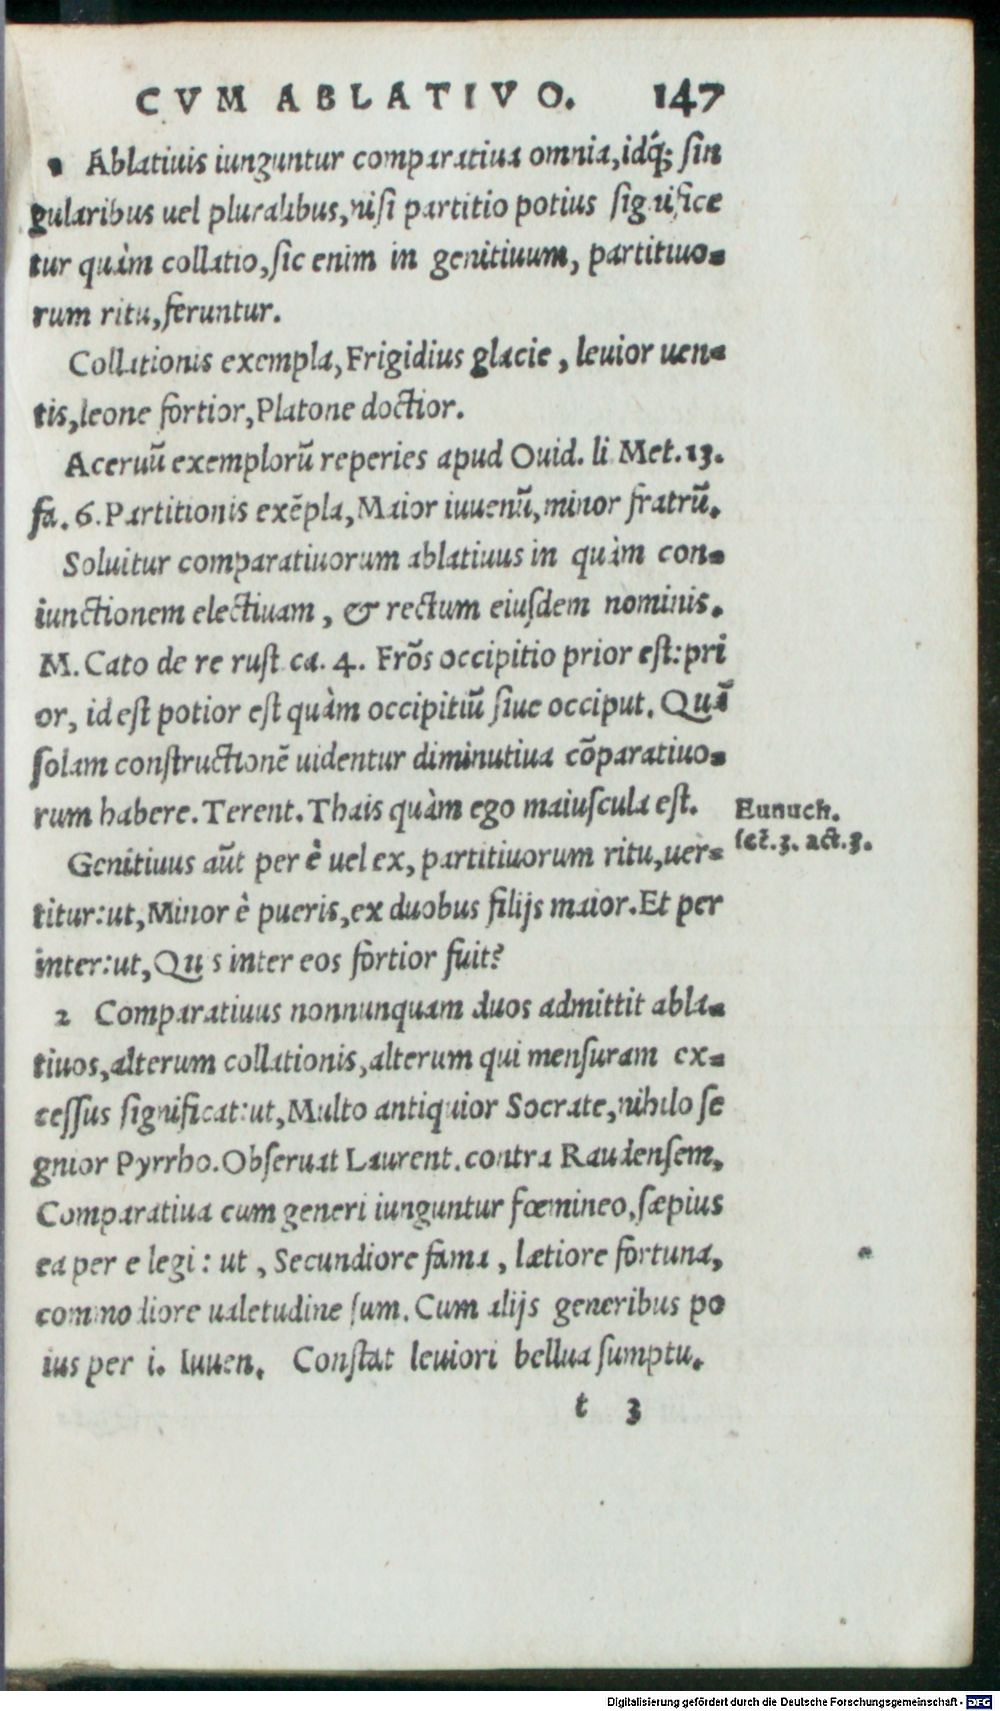 CVM ABLATIVO. 147
1 Ablatiuis iunguntur comparatiua omnia, idq́; ſin
gularibus uel pluralibus, niſi partitio potius ſignifice
tur quàm collatio, ſic enim in genitiuum, partitiuo=
rum ritu, feruntur.
Collationis exempla, Frigidius glacie, leuior uen=
tis, leone fortior, Platone doctior.
Aceruũ exemplorũ reperies apud Ouid. li Met. 13.
fa. 6. Partitionis exẽpla, Maior iuuenũ, minor fratrũ.
Soluitur comparatiuorum ablatiuus in quàm con=
iunctionem electiuam, & rectum eiuſdem nominis.
M. Cato de re ruſt ca. 4. Frõs occipitio prior eſt: pri
or, id eſt potior eſt quàm occipitiũ ſiue occiput. Quã
ſolam conſtructionẽ uidentur diminutiua cõparatiuo=
rum habere. Terent. Thais quàm ego maiuſcula eſt.
Eunuch.
ſcẽ. 3. act. 3.
Genitiuus aũt per è uel ex, partitiuorum ritu, uer=
titur: ut, Minor è pueris, ex duobus filijs maior. Et per
inter: ut, Quis inter eos fortior fuit?
2 Comparatiuus nonnunquam duos admittit abla=
tiuos, alterum collationis, alterum qui menſuram ex=
ceſſus ſignificat: ut, Multo antiquior Socrate, nihilo ſe
gnior Pyrrho. Obſeruat Laurent. contra Raudenſem,
Comparatiua cum generi iunguntur fœmineo, ſæpius
ea per e legi: ut, Secundiore fama, lætiore fortuna,
commodiore ualetudine ſum. Cum alijs generibus po
ius per i. Iuuen. Conſtat leuiori bellua ſumptu.
t 3
Digitalisierung gefördert durch die Deutsche Forschungsgemeinschaft - DFG